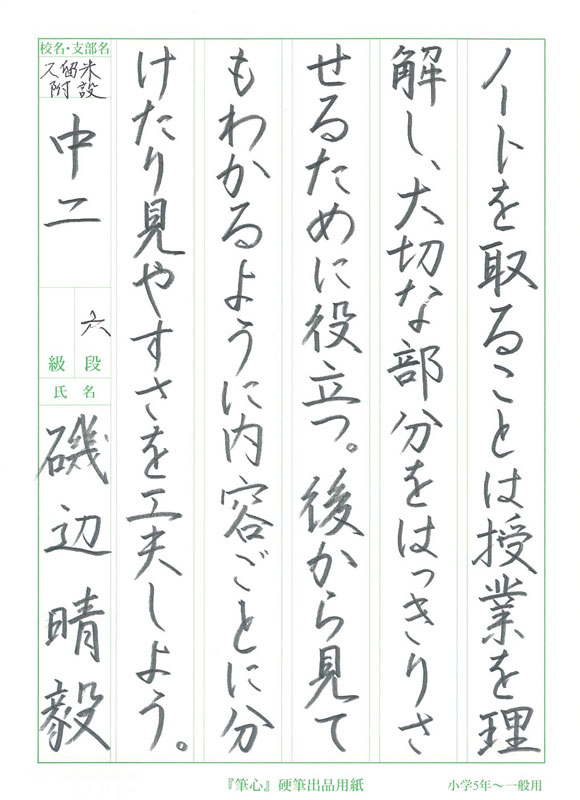 ノートを取ることは授業を理
解し、大切な部分をはっきりさ
せるために役立つ。後から見て
もわかるように内容ごとに分
けたり見やすさを工夫しよう。
校名・支部名
久留米
附設
中二
六
段
級
氏名
磯辺晴毅
『筆心』硬筆出品用紙
小学5年〜一般用